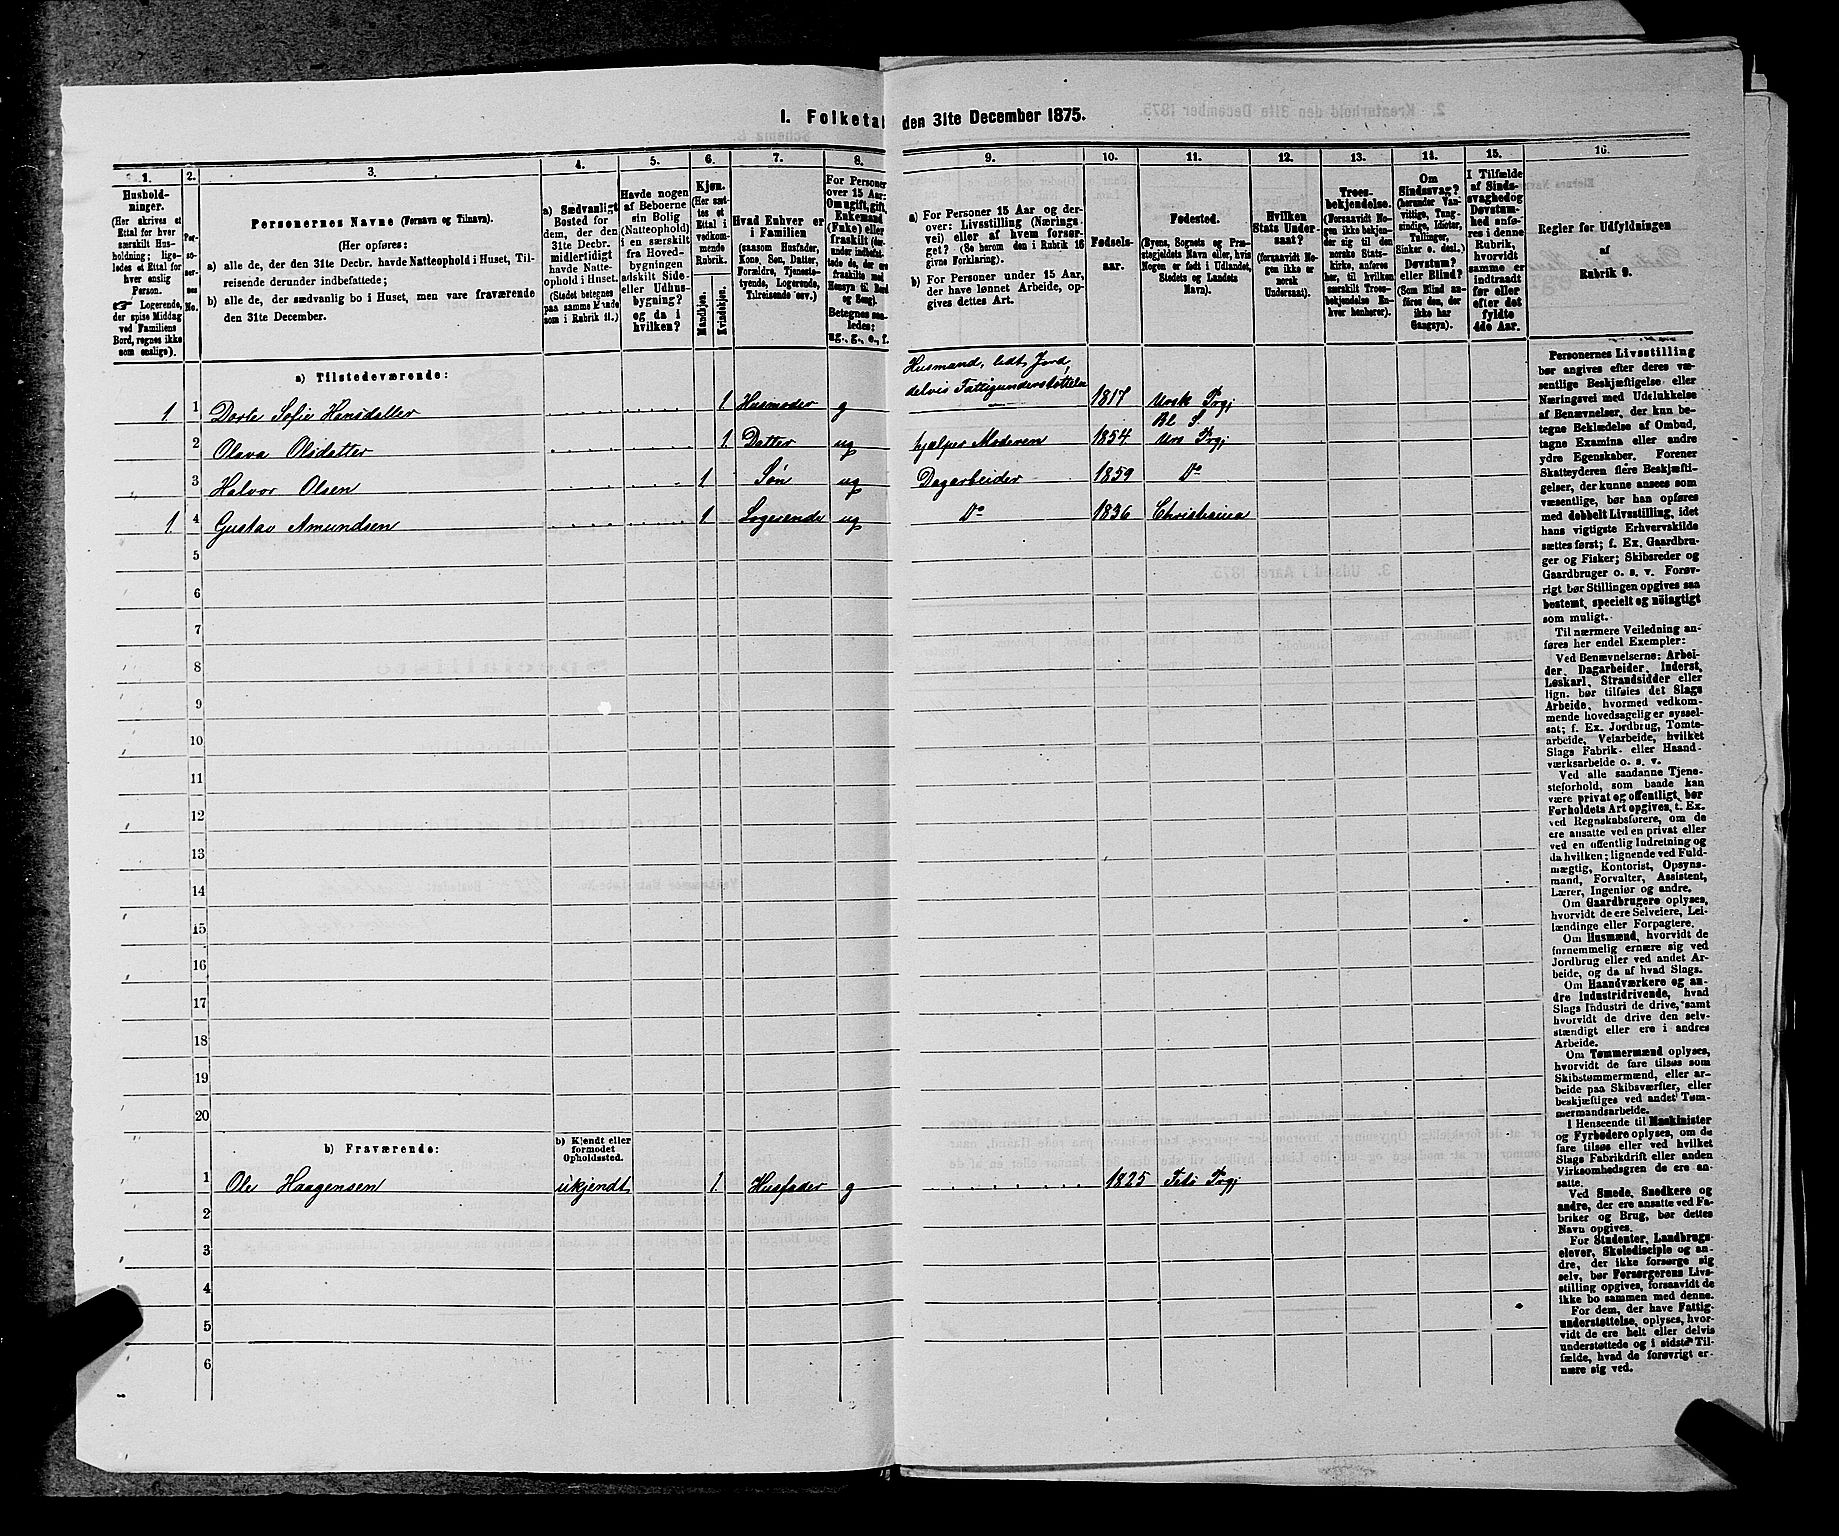 I. Folketal den 31te December 1875.
1. 2. 3. 4. 5. 6. 7. 8. 9. 10. 11. 12. 13. 14. 15. 16.
Hushold-
ninger.
(Her skrives et
Ettal for hver
særskilt Hus-
holdning; lige-
ledes et Ettal for
hver enslig
Person.
Logerende,
der spise Middag
ved Familiens
Bord, regnes ikke
som enslige).
Personernes Navne (Fornavn og Tilnavn).
(Her opføres:
a) alle de, der den 31te Decbr. havde Natteophold i Huset, Til-
reisende derunder indbefattede;
b) alle de, der sædvanlig bo i Huset, men vare fraværende
den 31te December.
a) Sædvanligt
Bosted for
dem, der den
31te Decbr.
midlertidigt
havde Natte-
ophold i Huset.
(Stedet betegnes
paa samme Maade
som i Rubrik 11.)
Havde nogen
af Beboerne
sin Bolig
(Natteophold)
i en særskilt
fra Hoved-
bygningen
adskilt Side-
eller Udhus-
bygning?
og da i
hvilken?
Kjøn.
(Her sæt-
tes et
Ettal i
vedkom-
mende
Rubrik.
Mandkjøn.
Kvindekjøn.
Hvad Enhver er
i Familien
(saasom Husfader,
Kone, Søn, Datter,
Forældre, Tjeneste-
tyende, Logerende,
Tilreisende osv.)
For Personer
over 15 Aar:
Om ugift, gift,
Enkemand
(Enke) eller
fraskilt
Betegnes saa-
ledes:
ug., g., e., f.
a) For Personer 15 Aar og der-
over: Livsstilling (Nærings-
vei) eller af hvem forsør-
get? (Se herom den i Rubrik 16
givne Forklaring).
b) For Personer under 15 Aar,
der have lønnet Arbeide, op-
gives dettes Art.
Fødsels-
aar.
Fødested.
(Byens, Sognets og Præ-
stegjeldets Navn eller, hvis
Nogen er født i Udlandet,
Stedets og Landets
Navn).
Hvilken
Stats Under-
saat?
(forsaavidt No-
gen ikke er
norsk
Undersaat).
Troes-
bekjendelse.
(Forsaavidt No-
gen ikke bekjen-
der sig til den
norske Stats-
kirke, anføres
her, til hvilken
særskilt Troes-
bekjendelse En-
hver henhører).
Om
Sindssvag?
(herunder Van-
vittige, Tung-
sindige, Idioter,
Tullinger,
Sinker o. desl.)
Døvstum?
eller Blind?
(Som Blind an-
føres den, der
ikke har
Gangsyn).
I Tilfælde
af Sinds-
svaghed og
Døvstum-
hed anfø-
res i denne
Rubrik,
hvorvidt
samme er
indtraadt
før eller
efter det
fyldte
4de Aar.
Regler for Udfyldningen
af
Rubrik 9.
a) Tilstedeværende:
Husmand, udt Jord,
delvis Fattigunderstøttelse
1. 1 Dorte Sofie Hansdatter 1. Husmoder g 1817 Ursk Prgj
Bl S.
2 Olava Olsdatter 1. Datter ug hjælper Moderen 1854 Urs Prgj
3 Halvor Olsen 1 Søn ug Dagarbeider 1859 Do
1. 4 Gustav Amundsen 1. Logerende ug Do 1836 Christiania
5
6
7
8
9
10
11
12
13
14
15
16
17
18
19
20
b) Fraværende:
b) Kjendt eller
formodet
Opholdssted.
1 Ole Haagensen ukjendt 1. Husfader g 1825 Feds Prgj
2
3
4
5
6
Personernes Livsstilling
bør angives efter deres væ-
sentlige Beskjæftigelse eller
Næringsvei med Udelukkelse
af Benævnelser, der kun be-
tegne Beklædelse af Ombud,
tagne Examina eller andre
ydre Egenskaber. Forener
Skatteyderen flere Beskjæfti-
gelser, der kunne ansees som
væsentlige, bør han opføres
med dobbelt Livsstilling, idet
hans vigtigste Erhvervskilde
sættes først; f. Ex. Gaardbru-
ger og Fisker; Skibsreder og
Gaardbruger o. s. v. Forøv-
rigt bør Stillingen opgives saa
bestemt, specielt og nöiagtigt
som muligt.
Til nærmere Veiledning an-
føres her endel Exempler:
Ved Benævnelserne: Arbei-
der, Dagarbeider, Inderst,
Løskarl, Strandsidder eller
lign. bør tilføies det Slags
Arbeide, hvormed vedkom-
mende hovedsagelig er syssel-
sat; f. Ex. Jordbrug, Tomte-
arbeide, Veiarbeide, hvilket
Slags Fabrik- eller Haand-
værksarbeide o. s. v.
Ved alle saadanne Tjene-
steforhold, som baade kan
være privat og offentligt, bør
Forholdets Art opgives, t. Ex.
ved Regnskabsførere, om de
ere ansatte ved en privat eller
ved en offentlig Indretning og
da hvilken; lignende ved Fuld-
mægtig, Kontorist, Opsyns-
mand, Forvalter, Assistent,
Lærer, Ingeniør og andre.
Om Gaardbrugere oplyses,
hvorvidt de ere Selveiere, Lei-
lændinge eller Forpagtere.
Om Husmænd, hvorvidt de
fornemmelig ernære sig ved
Jordbrug eller ved andet Ar-
beide, og da af hvad Slags.
Om Haandværkere og an-
dre Industridrivende, hvad
Slags Industri de drive, samt
hvorvidt de drive den selv-
stændigt eller ere i andres
Arbeide.
Om Tømmermænd oplyses,
hvorvidt de fare tilsøs som
Skibstømmermænd, eller ar-
beide paa Skibsværfter, eller
beskjæftiges ved andet Tøm-
mermandsarbeide.
I Henseende til Maskinister
og Fyrbødere oplyses, om de
fare tilsøs eller ved hvilket
Slags Fabrikdrift eller anden
Virksomhedsgren de ere an-
satte.
Ved Smede, Snedkere og
andre, der ere ansatte ved Fa-
briker og Brug, bør dettes
Navn opgives.
For Studenter, Landbrugs-
elever, Skoledisciple og an-
dre, der ikke forsørge sig
selv, bør Forsørgerens Livs-
stilling opgives, forsaavidt de
ikke bo sammen med denne.
For dem, der have Fattig-
understøttelse, oplyses, hvor-
vidt de ere helt eller delvis
understøttede og i sidste Til-
fælde, hvad de forøvrigt er-
nære sig ved.